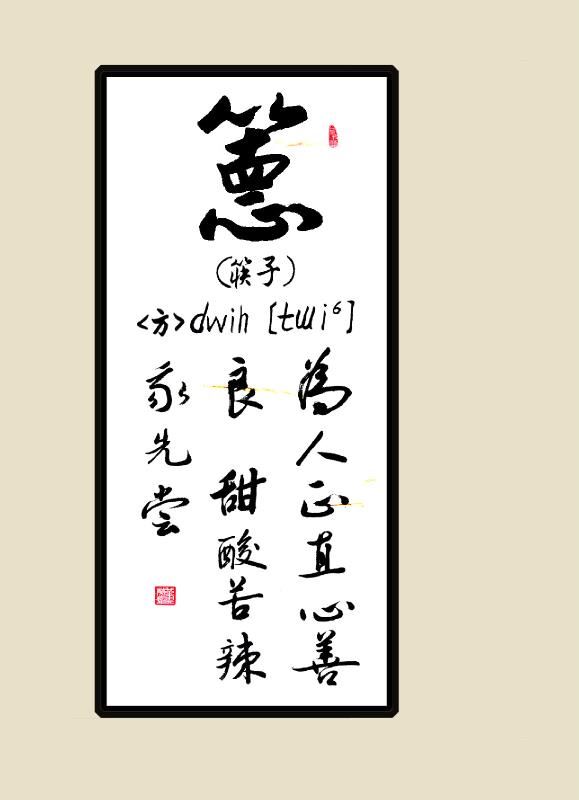 (筷子)
<方>dwih [tɯi⁶]
為人正直心善
良 甜酸苦辣
我先尝